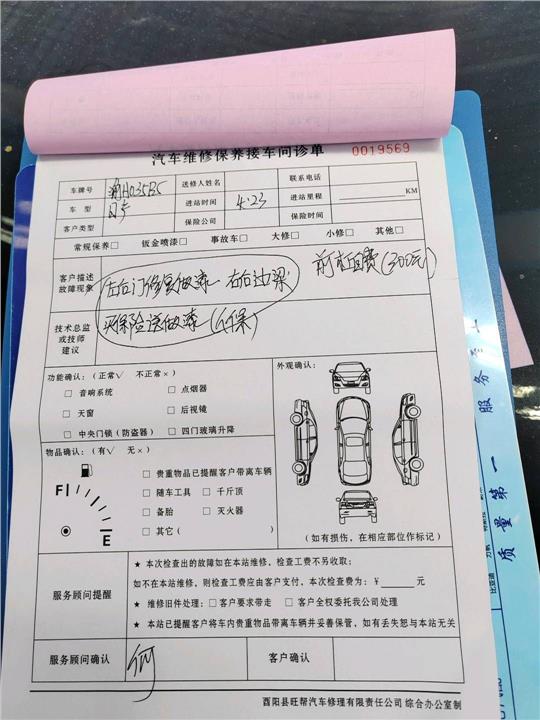 汽车维修保养接车问诊单 0019569
车牌号 渝H035B5 送修人姓名 联系电话
车型 进站时间 4.23 进站里程 KM
客户类型 保险公司 保险时间
常规保养□ 钣金喷漆□ 事故车□ 大修□ 小修□ 其他□
客户描述
故障现象
左后门修复做漆 右后边梁
前 自费(300元)
技术总监
或技师
建议
买保险送做漆
功能确认：(正常√ 不正常×)
□ 音响系统 □ 点烟器
□ 天窗 □ 后视镜
□ 中央门锁(防盗器) □ 四门玻璃升降
外观确认：
物品确认：(有√ 无×)
F E
□ 贵重物品已提醒客户带离车辆
□ 随车工具 □ 千斤顶
□ 备胎 □ 灭火器
□ 其它( )
(如有损伤，在相应部位作标记)
服务顾问提醒
★ 本次检查出的故障如在本站维修，检查工费不另收取；
如不在本站维修，则检查工费应由客户支付，本次检查费为：￥ 元
★ 维修旧件处理：□ 客户要求带走 □ 客户全权委托我公司处理
★ 本站已提醒客户将车内贵重物品带离车辆并妥善保管，如有丢失恕与本站无关
服务顾问确认 何 客户确认
酉阳县旺帮汽车修理有限责任公司 综合办公室制
质量第一 服务
比亚迪